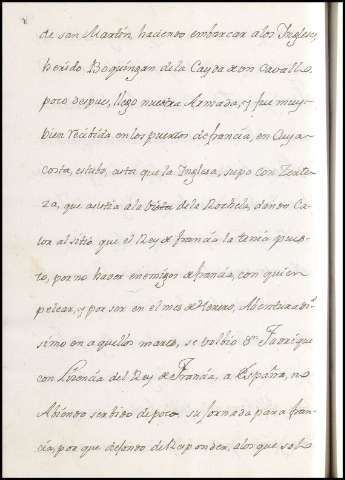 de san Martin, haciendo embarcar alos Ingleses,
herido Boquingan de la Cayda de un Cavallo.
poco despues, llego nuestra Armada, y fue muy-
bien recibida en los puertos de francia, en Cuya-
costa, estubo, asta que la Inglesa, supo con Zerte-
za, que asistia a la vista de la Rochela, dando Ca-
lor al sitio que el Rey de francia la tenia pues-
to, por no haver enemigos de francia, con quien
pelear, y por ser en el mes de Henero, Abenturadi-
simo en aquellos mares, se volbio Dn Fadrique
con Lizencia del Rey de Francia, a España, no
Abiendo serbido de poco, su Jornada para fran-
cia, por que dejando de Responder, alos que solo